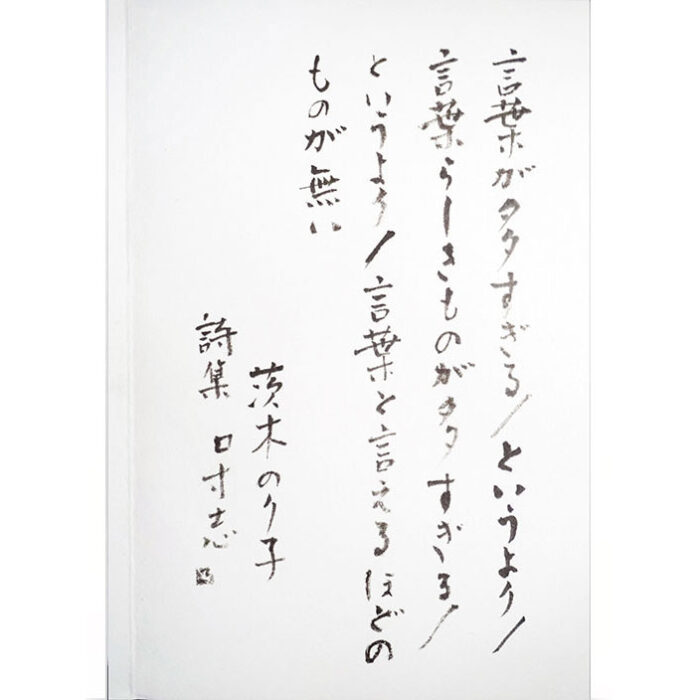 言葉が多すぎる/というより/
言葉らしきものが多すぎる/
というより/言葉と言えるほどの
ものが無い
茨木のり子
詩集 寸志